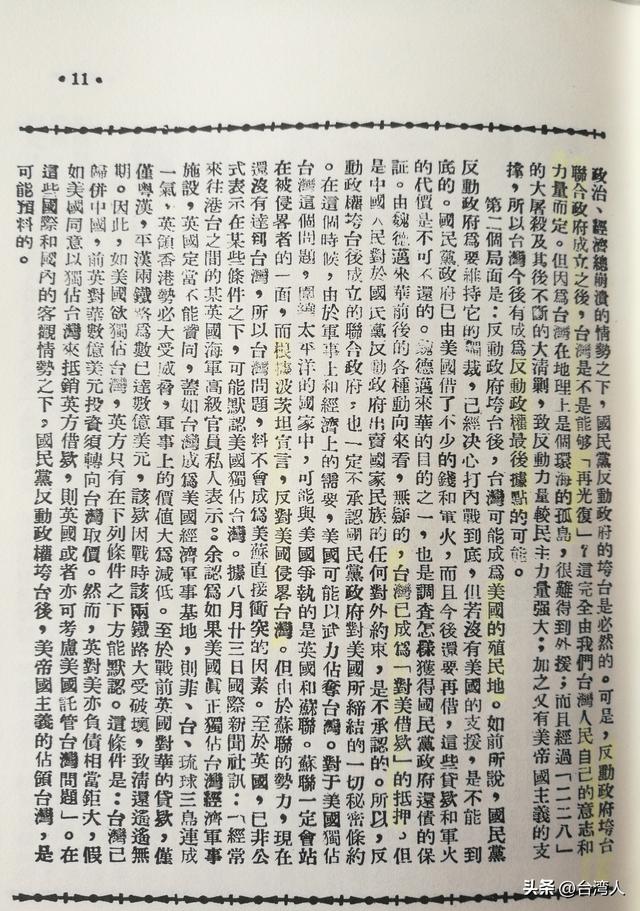 •11•
政治、經濟總崩潰的情勢之下，國民黨反動政府的垮台是必然的。可是，反動政府垮台
聯合政府成立之後，台灣是不是能够「再光復」？這完全由我們台灣人民自己的意志和
力量而定。但因爲台灣在地理上是個環海的孤島，很難得到外援；而且經過「二二八」
的大屠殺及其後不斷的大清剿，致反動力量較民主力量强大；加之又有美帝國主義的支
撑，所以台灣今後有成爲反動政權最後據點的可能。
第二個局面是：反動政府垮台後，台灣可能成爲美國的殖民地。如前所說，國民黨
反動政府爲要維持它的獨裁，已經決心打內戰到底，但若沒有美國的支援，是不能　到
底的。國民黨政府已由美國借了不少的錢和軍火，而且今後還要再借，這些貸欵和軍火
的代價是不可不還的。魏德邁來華的目的之一，也是調查怎樣獲得國民黨政府還債的保
証。由魏德邁來華前後的各種動向來看，無疑的，台灣已成爲「對美借欵」的抵押。但
是中國人民對於國民黨反動政府出賣國家民族的任何對外約束，是不承認的。所以，反
動政權垮台後成立的聯合政府，也一定不承認國民黨政府對美國所締結的一切秘密條約
。在這個時候，由於軍事上和經濟上的需要，美國可能以武力佔奪台灣。對于美國獨佔
台灣這個問題，圍繞太平洋的國家中，可能與美國爭執的是英國和蘇聯。蘇聯一定會站
在被侵畧者的一面，而根據波茨坦宣言，反對美國侵畧台灣。但由於蘇聯的勢力，現在
還沒有達到台灣，所以台灣問題，料不會成爲美蘇直接衝突的因素。至於英國，已非公
式表示在某些條件之下，可能默認美國獨佔台灣。據八月廿三日國際新聞社訊：「經常
來往港台之間的某英國海軍高級官員私人表示：余認爲如果美國眞正獨佔台灣經濟軍事
施設，英國定當不能贊同，蓋如台灣成爲美國經濟軍事基地，則菲、台、琉球三島連成
一氣，英領香港勢必大受威脅，軍事上的價值大爲減低。至於戰前英國對華的貸欵，僅
僅粤漢，平漢兩鐵路爲數已達數億美元，該欵因戰時該兩鐵路大受破壞，致淸還遙遙無
期。因此，如美國欲獨佔台灣，英方只有在下列條件之下方能默認。這條件是：台灣已
歸併中國，前英對華數億美元投資須轉向台灣取價。然而，英對美亦負債相當鉅大，假
如美國同意以獨佔台灣來抵銷英方借欵，則英國或者亦可考慮美國託管台灣問題」。在
這些國際和國內的客觀情勢之下，國民黨反動政權垮台後，美帝國主義的佔領台灣，是
可能預料的。
头条 @台湾人